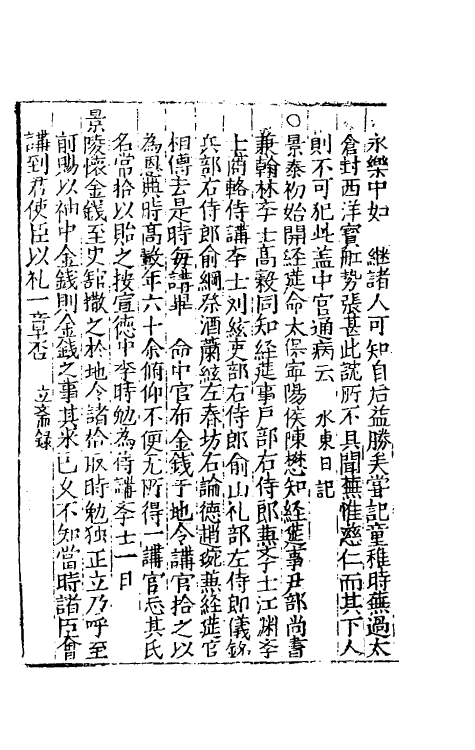 永樂中如　継諸人可知自后益勝矣嘗記童稚時蕪過太
倉封西洋寳舡势張甚此說所不具聞蕪惟慈仁而其下人
則不可犯此盖中官通病云　水東日記
○景泰初始開経筵命太保寕陽侯陳懋知経筵事尹部尚書
兼翰林李士高榖同知経筵事戸部右侍郎兼李士江渊李
士商輅侍講李士刘絃吏部右侍郎俞山礼部左侍郎儀銘
兵部右侍郎俞綱祭酒蕭絃左春坊右諭德趙琬兼経筵官
相傳去是時每講畢　命中官布金錢于地令講官拾之以
為恩典時高榖年六十余俯仰不便无所得一講官忘其氏
名常拾以貽之按宣德中李時勉為侍講李士一日
景陵懷金錢至史舘撒之於地令諸拾取時勉独正立乃呼至
前賜以袖中金錢則金錢之事其來已乆不知當時諸臣會
講到君使臣以礼一章否　立齋錄